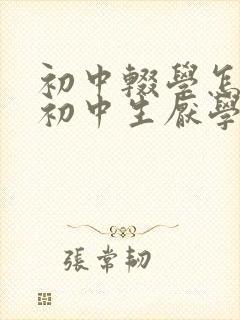 初中輟學怎
初中生厭學
張常韧